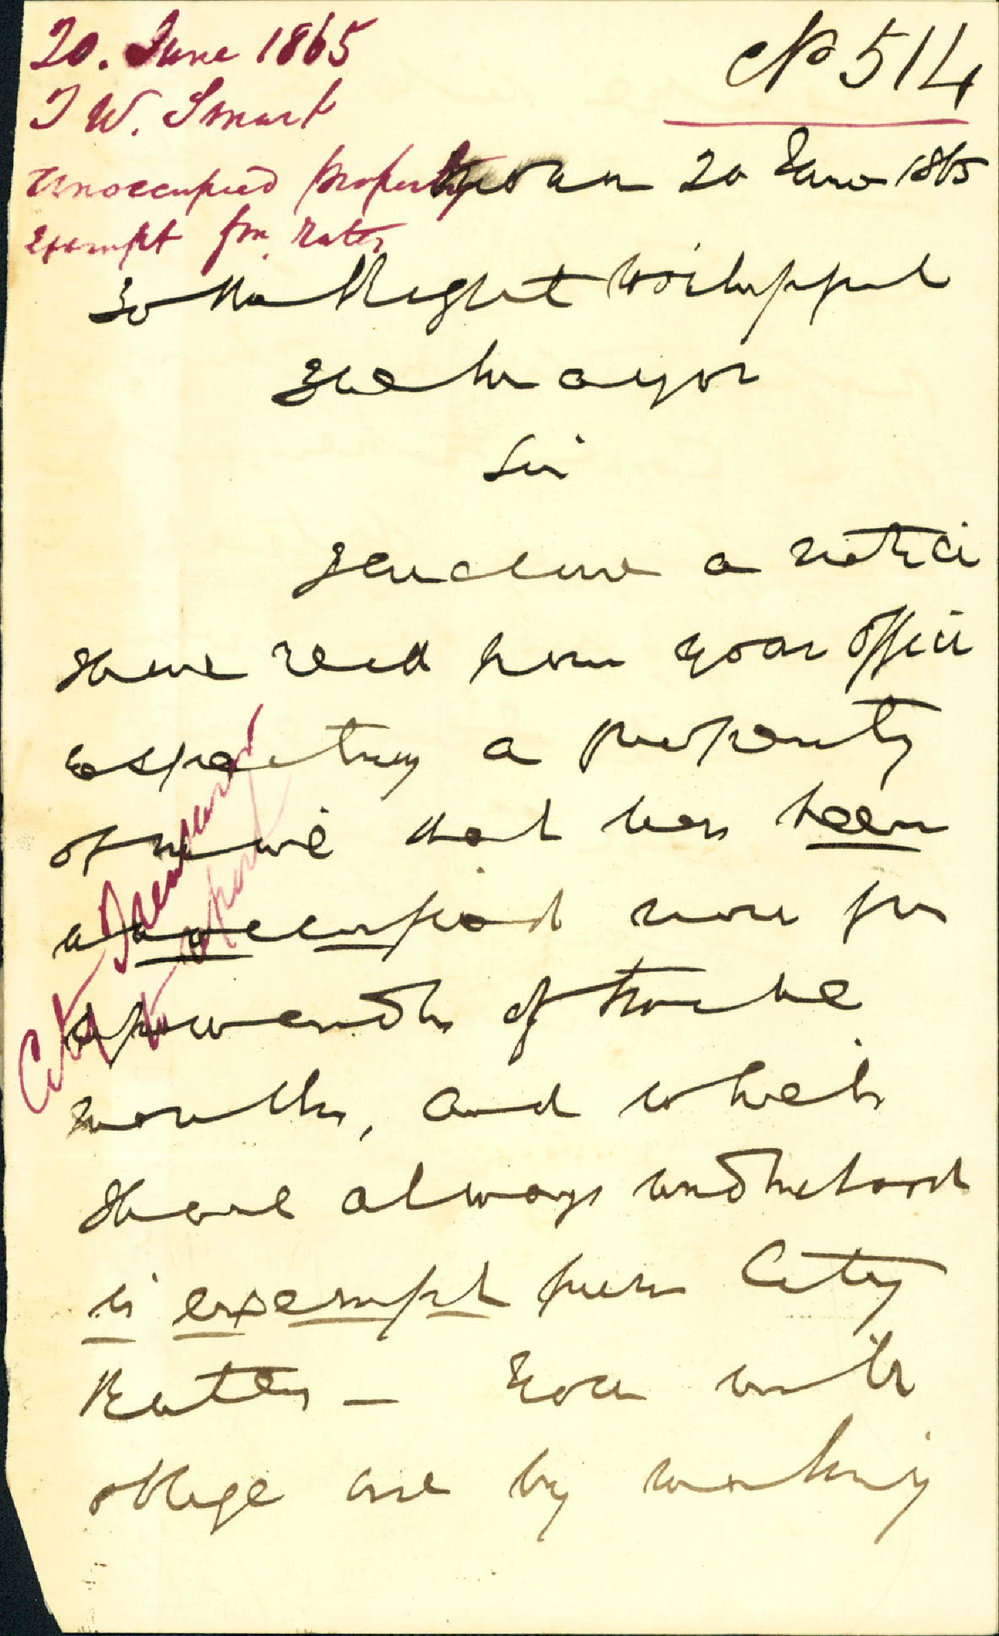 20. June 1865
T W. Smart
Unoccupied property
Exempt from rates
No 514
20 June 1865
To the Right Worshipful
The Mayor
Sir
I enclose a notice
I have recd from your office
respecting a property
of mine that has been
unoccupied now for
upwards of twelve
months, and which
I have always understood
is exempt from City
Rates — You will
oblige me by making
City Treasurer
to report